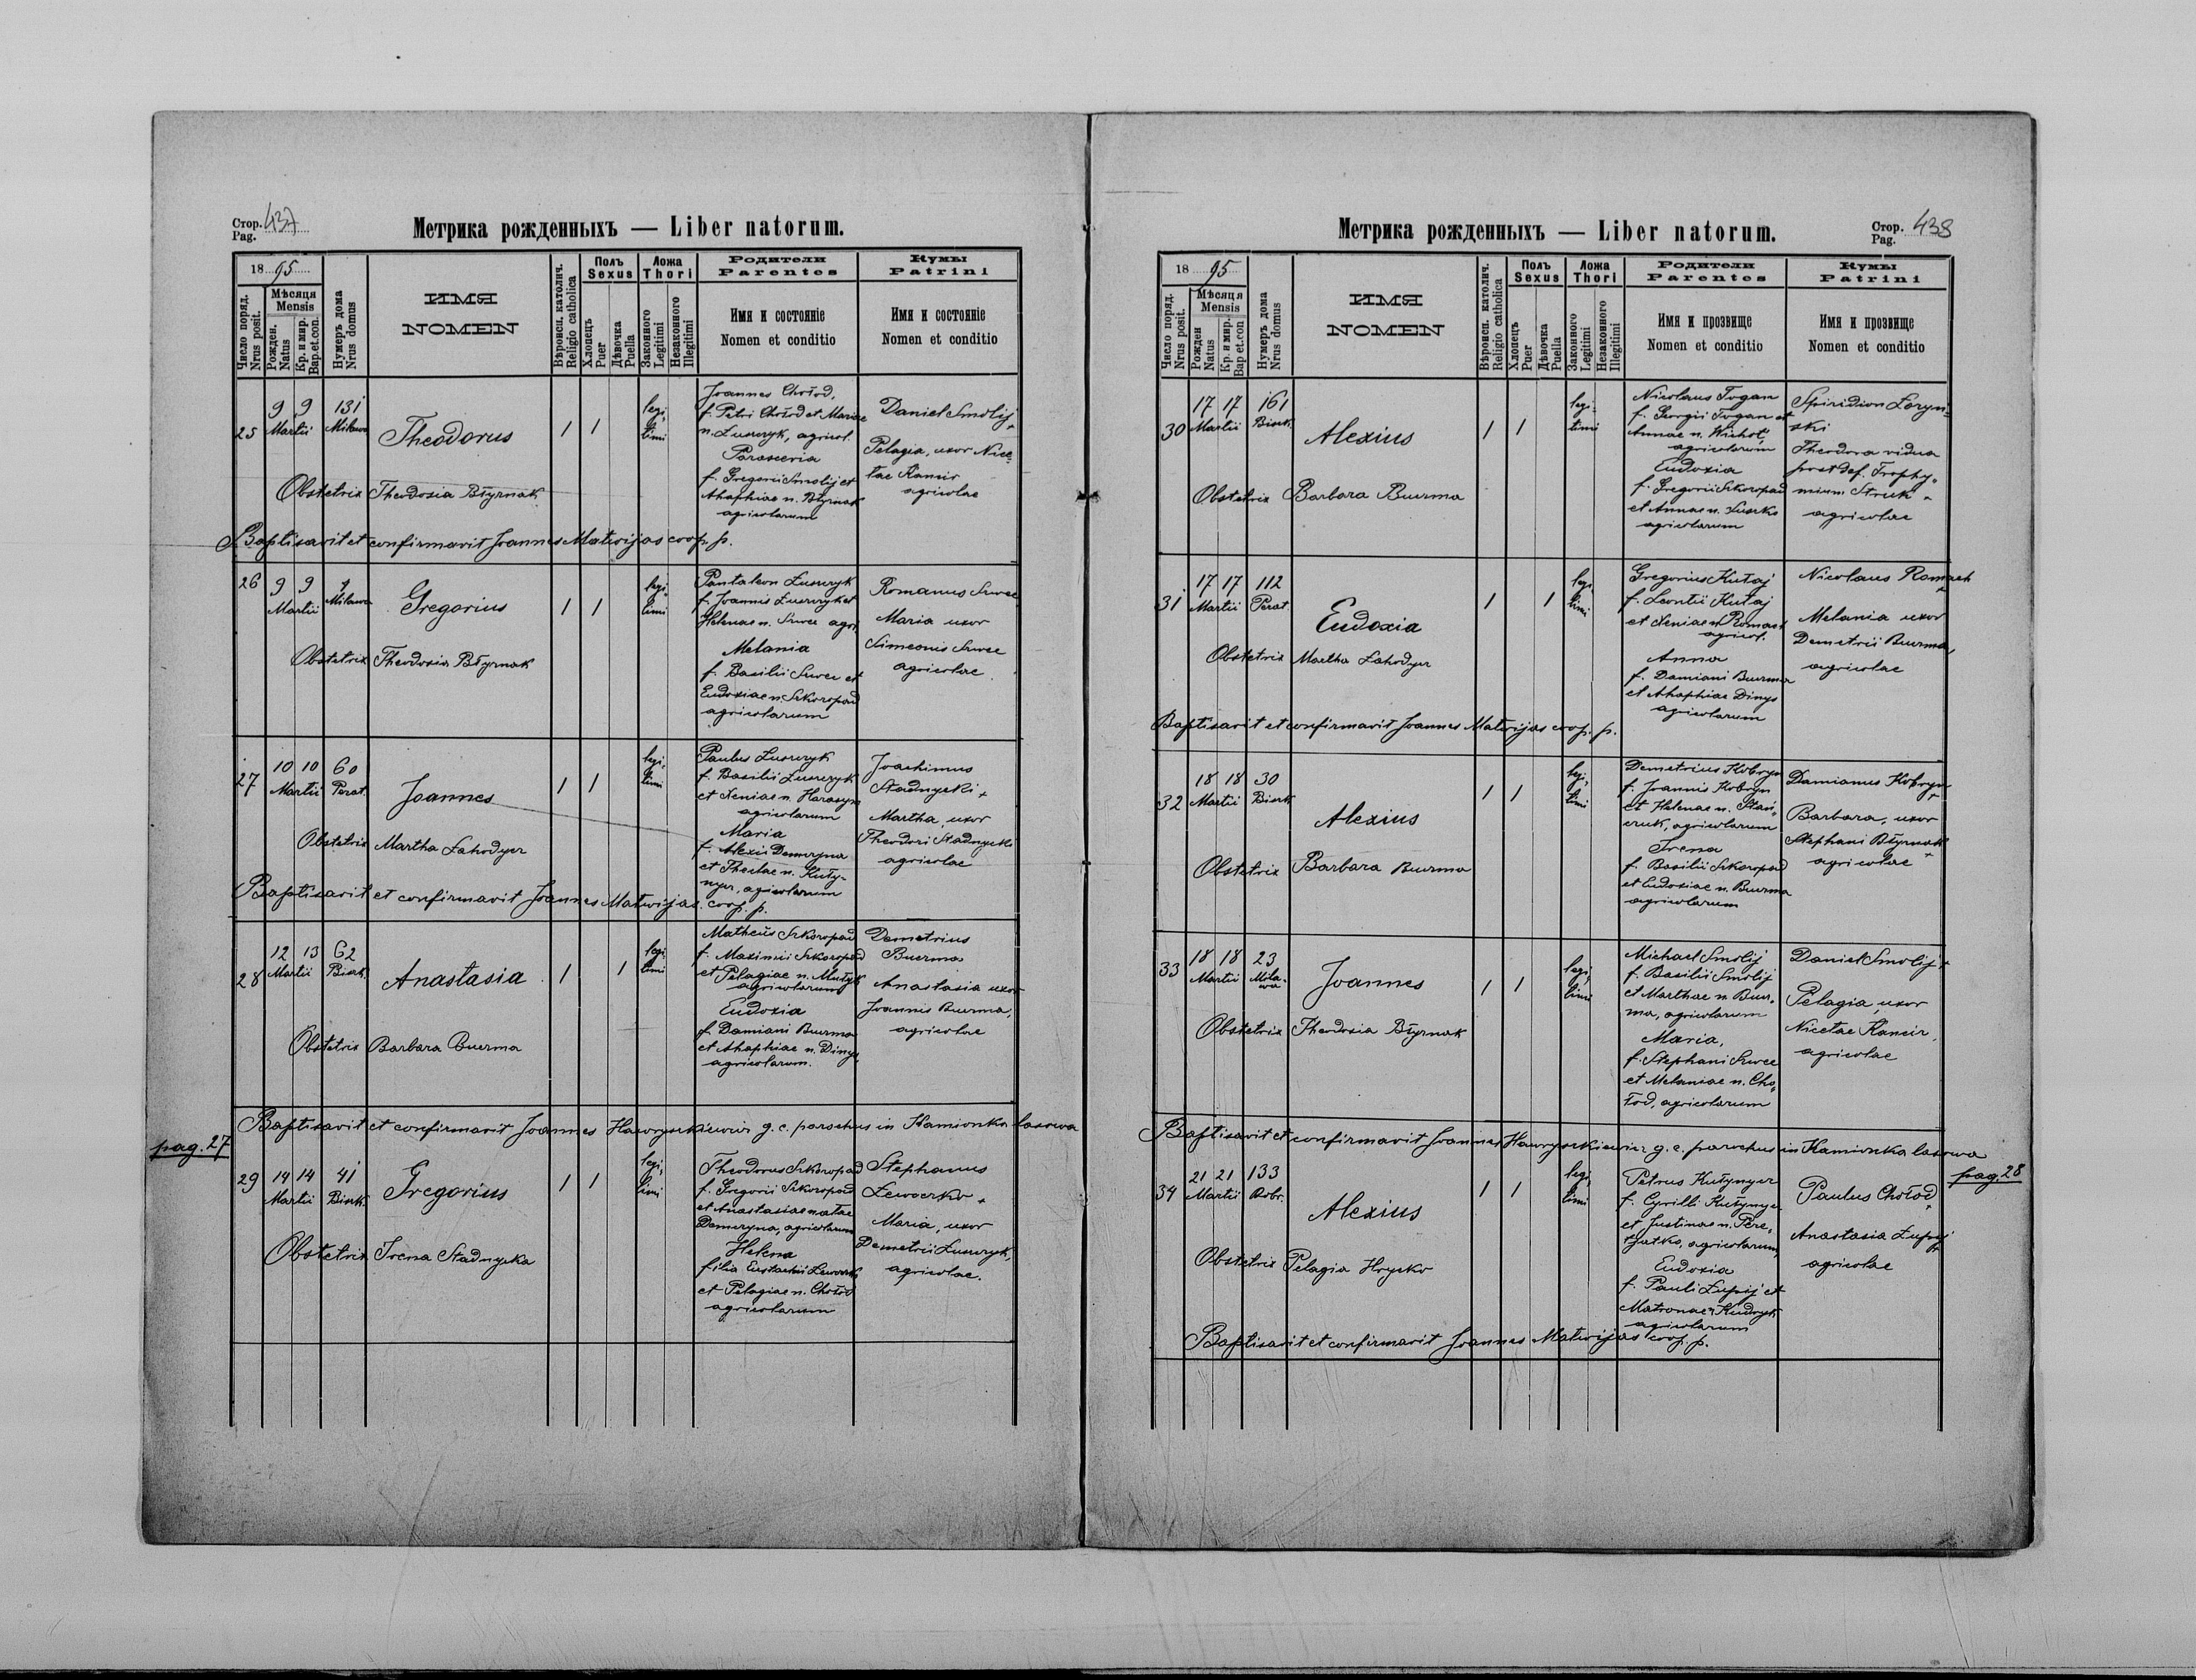 Стор. 437
Pag.
Метрика рожденныхъ — Liber natorum.
18 95
Число поряд.
Nrus posit.
Мѣсяця
Mensis
Рожден.
Natus
Кр. и мир.
Bap.et.con.
Нумеръ дома
Nrus domus
ИМЯ
NOMEN
Вѣроисп. католич.
Religio catholica
Полъ
Sexus
Хлопець
Puer
Дѣвочка
Puella
Ложа
Thori
Законного
Legitimi
Незаконного
Illegitimi
Родители
Parentes
Имя и состояніе
Nomen et conditio
Кумы
Patrini
Имя и состояніе
Nomen et conditio
25
9 9 131
Martii Milawa
Theodorus
1 1
legi,
timi
Joannes Chołod,
f. Petri Chołod et Mariae
n. Zuszczyk, agricol.
Parascevia
f. Gregorii Smolij et
Ahaphiae n. Błyrnak
agricolarum
Daniel Smolij +
Pelagia, uxor Nice-
tae
agricolae
Obstetrix Theodosia Błyrnak
Baptisavit et confirmavit Joannes Matwijas coop. p.
26
9 9 1
Martii Milawa
Gregorius
1 1
legi,
timi
Pantaleon Zuszczyk
f. Joannis Zuszczyk et
Helenae n. Szwec agri.
Melania
f. Basilii Szwec et
Eudoxiae n. Szkoropad
agricolarum
Romanus Szwec
Maria uxor
Simeonis Szwec
agricolae
Obstetrix Theodosia Błyrnak
27
10 10 60
Martii Perat.
Joannes
1 1
legi,
timi
Paulus Zuszczyk
f. Basilii Zuszczyk
et Xeniae n. Harasym
agricolarum
Maria
f. Alexii Demczyna
et Theclae n. Kuły-
nycz, agricolarum
Joachimus
Stadnycki +
Martha, uxor
Theodori Stadnycki
agricolae
Obstetrix Martha Lahodycz
Baptisavit et confirmavit Joannes Matwijas coop. p.
28
12 13 62
Martii Biszk.
Anastasia
1 1
legi,
timi
Matheus Szkoropad
f. Maximii Szkoropad
et Pelagiae n. Mułyk
agricolarum
Eudoxia
f. Damiani Buczma
et Ahaphiae n. Dinys
agricolarum.
Demetrius
Buczma
Anastasia uxor
Joannis Buczma,
agricolae
Obstetrix Barbara Buczma
Baptisavit et confirmavit Joannes Hawryszkiewicz g. c. parochus in Kamionka lasowa
pag. 27
29
14 14 41
Martii Biszk.
Gregorius
1 1
legi,
timi
Theodorus Szkoropad
f. Gregorii Szkoropad
et Anastasiae natae
Demczyna, agricolarum
Helena
filia Eustachii
et Pelagiae n. Chołod
agricolarum
Stephanus
+
Maria, uxor
Demetrii Zuszczyk,
agricolae.
Obstetrix Irena Stadnycka
Метрика рожденныхъ — Liber natorum.
Стор. 438
Pag.
18 95
Число поряд.
Nrus posit.
Мѣсяця
Mensis
Рожден
Natus
Кр. и мир.
Bap et.con
Нумеръ дома
Nrus domus
ИМЯ
NOMEN
Вѣроисп. католич.
Religio catholica
Полъ
Sexus
Хлопець
Puer
Дѣвочка
Puella
Ложа
Thori
Законного
Legitimi
Незаконного
Illegitimi
Родители
Parentes
Имя и прозвище
Nomen et conditio
Кумы
Patrini
Имя и прозвище
Nomen et conditio
30
17 17 161
Martii Biszk.
Alexius
1 1
legi-
timi
Nicolaus Togan
f. Georgii Togan et
Annae n.
agricolarum
Eudoxia
f. Gregorii Szkoropad
et Annae n.
agricolarum
Spiridion Lozyn-
ski
Theodora vidua
post def. Trophy-
mium Struk
agricolae
Obstetrix Barbara Buczma
31
17 17 112
Martii Perat.
Eudoxia
1 1
legi,
timi
Gregorius Kułaj
f. Leontii Kułaj
et Xeniae n. Romach
agricol.
Anna
f. Damiani Buczma
et Ahaphiae Dinys
agricolarum
Nicolaus Romach
+
Melania uxor
Demetrii Buczma,
agricolae
Obstetrix Martha Lahodycz
Baptisavit et confirmavit Joannes Matwijas coop. p.
32
18 18 30
Martii Biszk
Alexius
1 1
legi,
timi
Demetrius Kobryn
f. Joannis Kobryn
et Helenae n.
agricolarum
Irena
f. Basilii Szkoropad
et Eudoxiae n. Buczma
agricolarum
Damianus Kobryn
+
Barbara, uxor
Stephani Błyrnak
agricolae +
Obstetrix Barbara Buczma
33
18 18 23
Martii Mila-
wa
Joannes
1 1
legi,
timi
Michael Smolij
f. Basilii Smolij
et Marthae n Bucz-
ma, agricolarum
Maria,
f. Stephani Szwec
et Melaniae n. Cho-
łod, agricolarum
Daniel Smolij +
Pelagia, uxor
Nicetae
agricolae
Obstetrix Theodosia Błyrnak
Baptisavit et confirmavit Joannes Hawryszkiewicz g. c. parochus in Kamionka lasowa
pag. 28
34
21 21 133
Martii Bobr.
Alexius
1 1
legi,
timi
Petrus Kułynycz
f. Cyrilli Kułynycz
et Justinae n. Pere-
agricolarum,
Eudoxia
f. Pauli Zupij et
Matronae n Kudryk
agricolarum
Paulus Chołod
+
Anastasia Zupij
agricolae
Obstetrix Pelagia Hrycko
Baptisavit et confirmavit Joannes Matwijas coop. p.